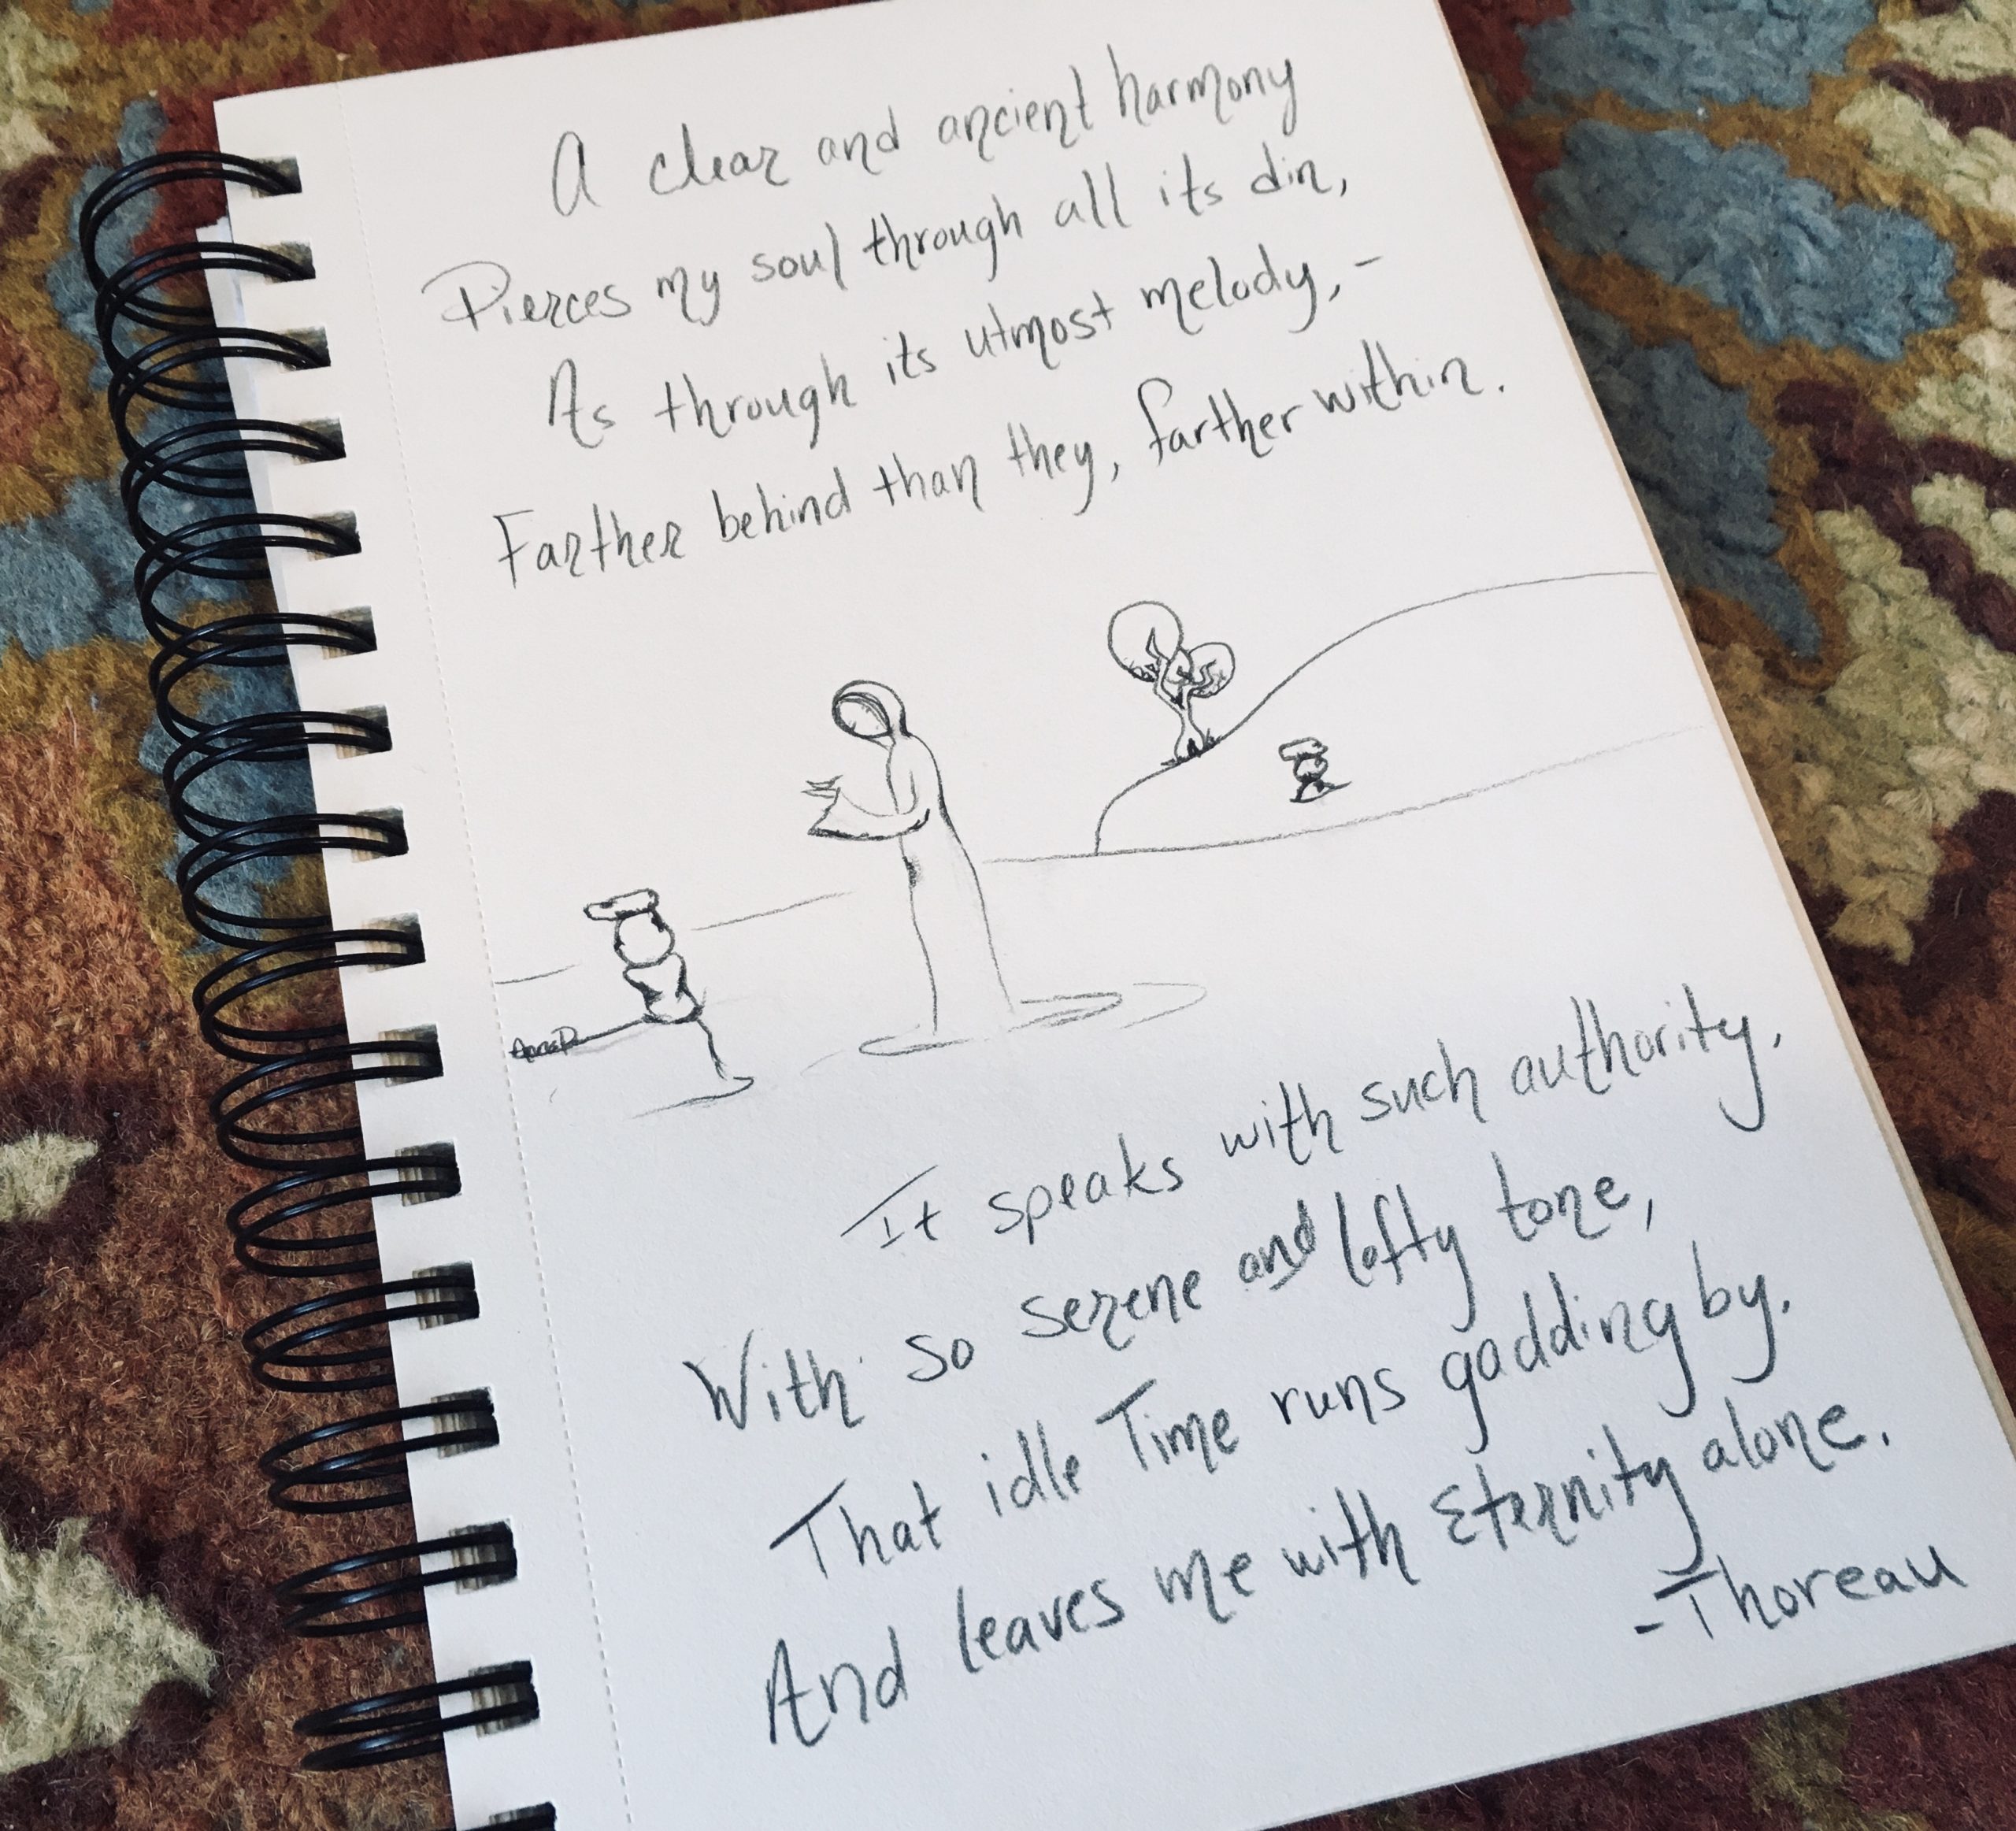 A clear and ancient harmony
Pierces my soul through all its din,
As through its utmost melody, -
Farther behind than they, farther within.
It speaks with such authority,
With so serene and lofty tone,
That idle Time runs gadding by.
And leaves me with Eternity alone.
-Thoreau